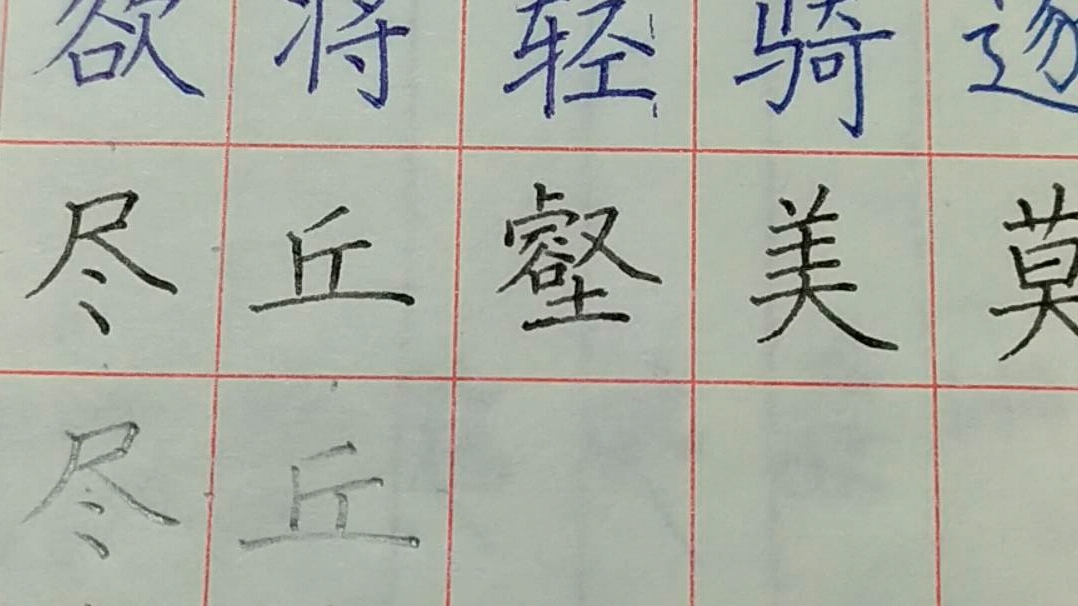 欲将轻骑逐
尽丘壑美莫
尽丘